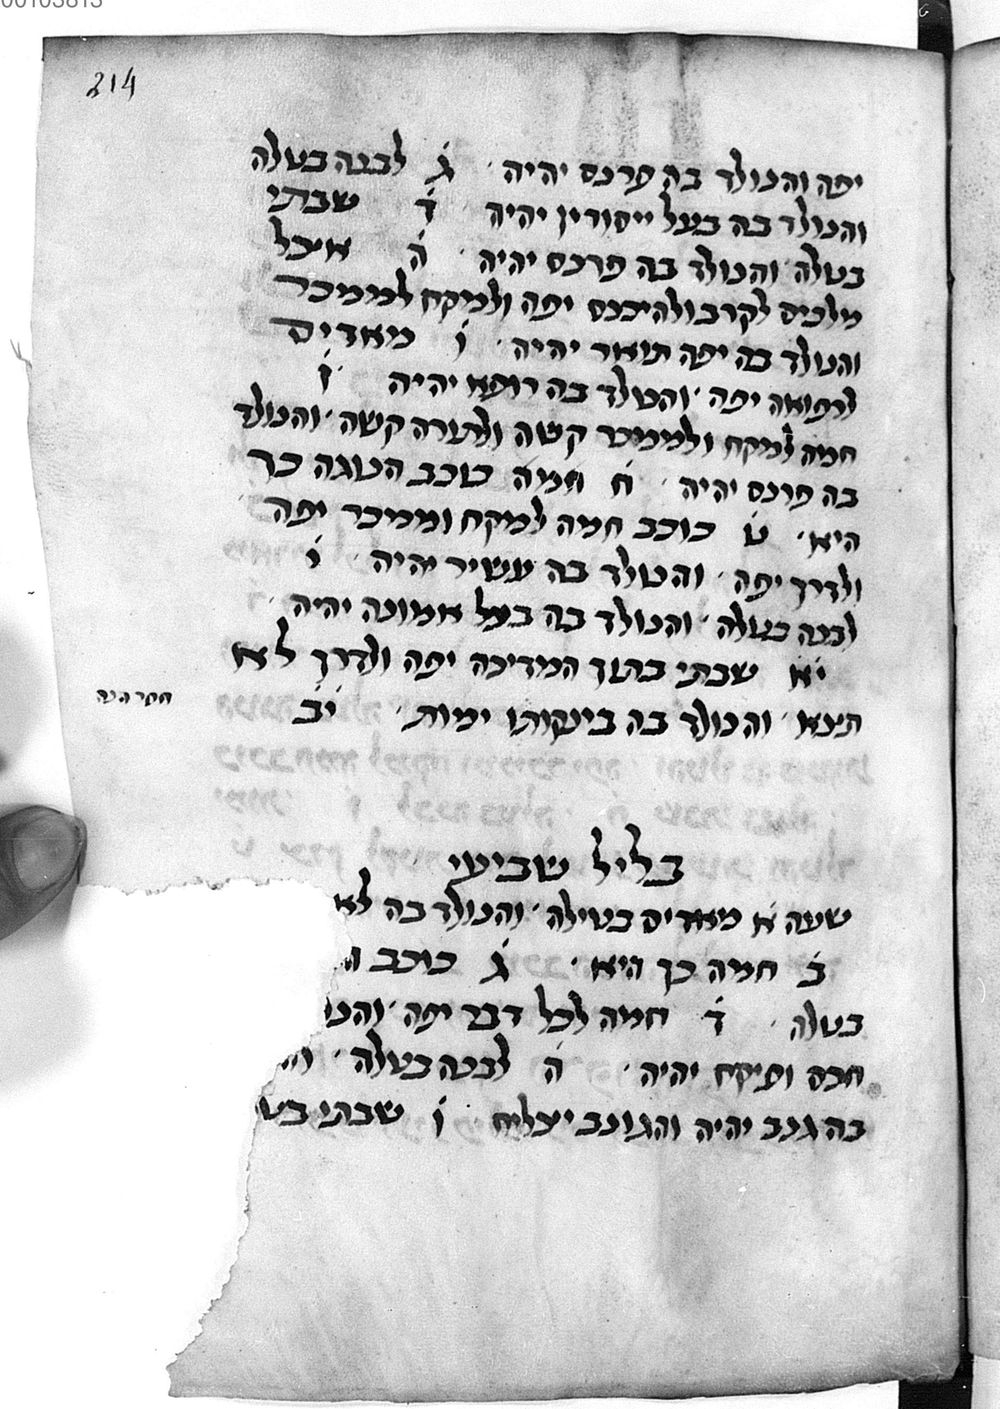 00103813
214
יפה והנולד בה פרנס יהיה ג לבנה בטלה
והנולד בה בעל ייסורין יהיה ד שבתי
בטלה והנולד בה פרנס יהיה ה איכל
מלכים לקרב ולהיכנס יפה ולמקח לממכר
והנולד בה יפה תואר יהיה ו מאדים
לרפואה יפה והנולד בה רופא יהיה ז
חמה למקח ולממכר קשה ולתורה קשה והנולד
בה פרנס יהיה ח חמה כוכב הנוגה כך
היא ט כוכב חמה למקח וממכר יפה
ולדרך יפה והנולד בה עשיר יהיה י
לבנה בטלה והנולד בה בעל אמונה יהיה
יא שבתי בתוך המדינה יפה ולדרך לא
תצא והנולד בה בינקותו ימות יב
חסר הנה
בליל שביעי
שעה א מאדים בטילה והנולד בה לא
ב חמה כך היא ג כוכב
בטלה ד חמה לכל דבר יפה והנו
חכם ופיקח יהיה ה לבנה בטלה
בה גנב יהיה והגונב יצליח ו שבתי בט